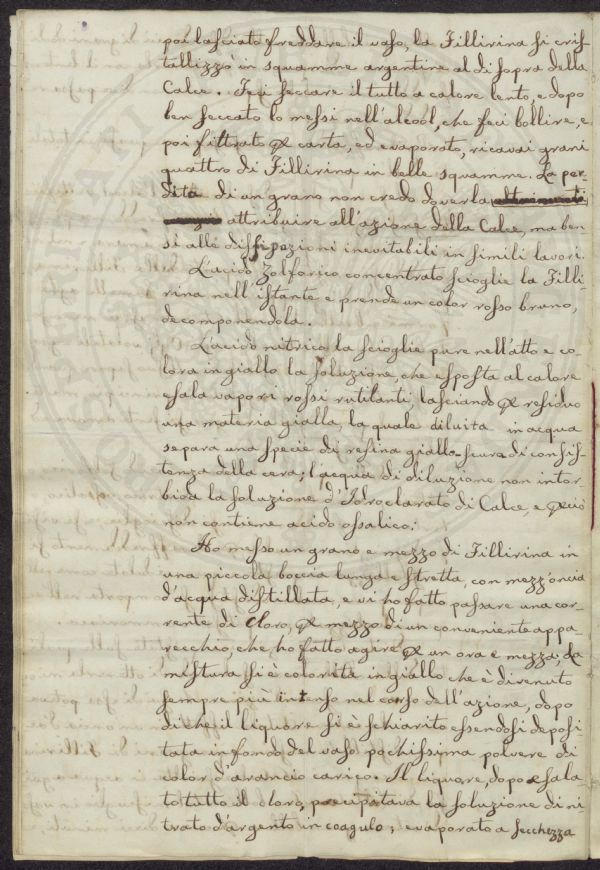 poi lasciato freddare il vaso, la Fillirina si cris-
tallizzò in squamme argentine al di sopra della
Calce. Feci seccare il tutto a calore lento, e dopo
ben seccato lo messi nell'alcool, che feci bollire, e
poi filtrato per carta, ed evaporato, ricavai grani
quattro di Fillirina in belle squamme. La per-
dita di un grano non credo doverla
attribuire all'azione della Calce, ma ben
si alle dissipazioni inevitabili in simili lavori.
L'acido Zolforico concentrato scioglie la Filli-
rina nell'istante e prende un color rosso bruno,
decomponendola.
L'acido nitrico la scioglie pure nell'atto e co-
lora in giallo la soluzione, che esposta al calore
esala vapori rossi rutilanti lasciando per residuo
una materia gialla, la quale diluita in acqua
separa una specie di resina giallo-scura di consis-
tenza della cera; l'acqua di diluzione non intor-
bida la soluzione d'Idroclarato di Calce, e perciò
non contiene acido ossalico.
Ho messo un grano e mezzo di Fillirina in
una piccola boccia lunga e stretta, con mezz'oncia
d'acqua distillata, e vi ho fatto passare una cor-
rente di Cloro, per mezzo di un conveniente appa-
recchio che ho fatto agire per un ora e mezza; La
mistura si è colorita in giallo che è divenuto
sempre più intenso nel corso dell'azione, dopo
di che il liquore si è schiarito essendosi deposi
tata in fondo del vaso pochissima polvere di
color d'arancio carico. Il liquore, dopo esala-
to tutto il cloro, precipitava la soluzione di ni-
trato d'argento in coagulo; evaporato a secchezza